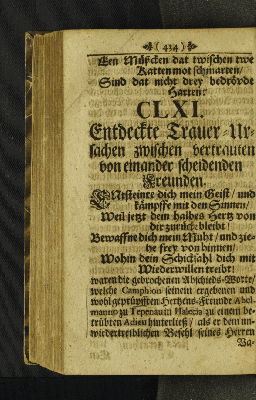 ( 434 )
Een Müßcken dat twischen twe
Katten mot schmarten/
Sind dat nicht drey bedrövde
Harten?
CLXI.
Entdeckte Trauer-Ur-
sachen zwischen vertrauten
von einander scheidenden
Freunden.
ENtsteinre dich mein Geist / und
kämpffe mit den Sinnen/
Weil jetzt dein halbes Hertz von
dir zurück bleibt!
Bewaffne dich mein Muht / und zie-
he frey von hinnen/
Wohin dein Schicksahl dich mit
Wiederwillen treibt!
waren die gebrochenen Abschieds-Worte/
welche Camphion seinem ergebenen und
wohlgeprüfften Hertzens-Freunde
zu einem be-
trübten Adieu hinterließ / als er dem un-
wiedertreiblichen Befehl seines Herren
Va-